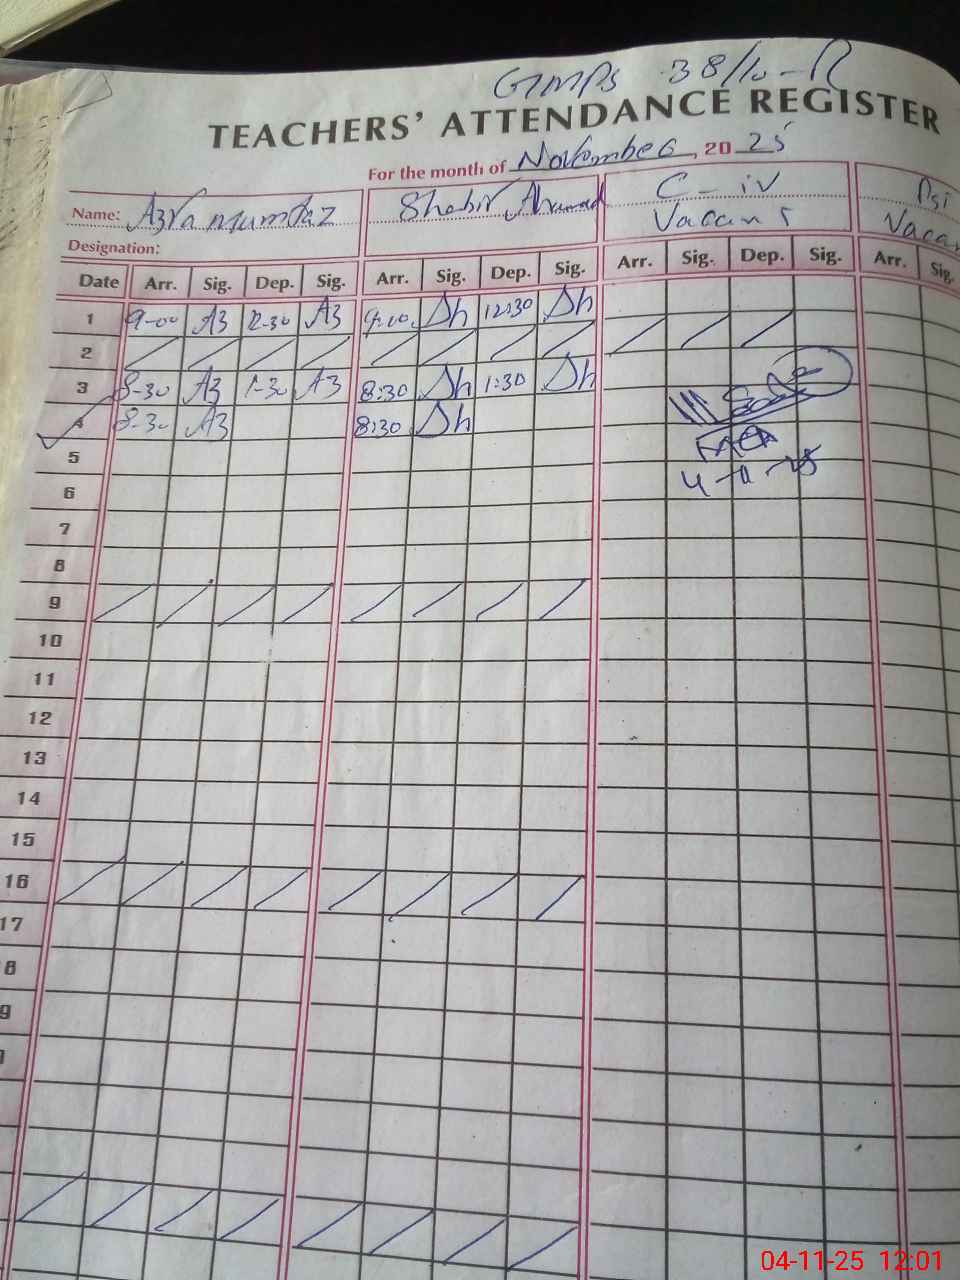 GMPS 38/10-R
TEACHERS' ATTENDANCE REGISTER
For the month of November, 20 25
Name: Azra Mumtaz Shabir Ahmad C-iv Vacant
Designation:
Date Arr. Sig. Dep. Sig. Arr. Sig. Dep. Sig. Arr. Sig. Dep. Sig. Arr. Sig.
1 9-00 Az 12-30 Az 9:00 Sh 12:30 Sh
2
3 8-30 Az 1-30 Az 8:30 Sh 1:30 Sh
4 8-30 Az 8:30 Sh
5
4-11-25
6
7
8
9
10
11
12
13
14
15
16
17
8
9
04-11-25 12:01